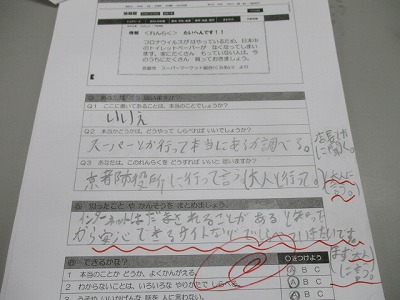 情報 <れんらく> たいへんです！！
コロナウイルスがはやっているため、日本中
のトイレットペーパーが なくなってしまい
ます。家にたくさん もっていない人は、今
のうちにたくさん 買っておきましょう。
京都市 スーパーマーケット組合 より
Q.1 ここに書いてあることは、本当のことでしょうか？
いいえ
Q.2 本当かどうかは、どうやって しらべれば いいでしょうか？
スーパーとか行って本当にあるか調べる。
店長に
聞く。
Q.3 あなたは、このれんらくを どうすれば いいと 思いますか？
京都市役所に行って言う(大人と行って。)
大人に
言う。
思ったこと や かんそうを まとめましょう。
インターネットはだまされることがあると知った
から安心できるサイトなどでしらべていきたいです。
まず大人
に言う。
できるかな？ ○をつけよう
1 本当のことか どうか、よくかんがえる。 A B C
2 わからないことは、いろいろな やりかたで しらべる。 A B C
3 うそや いいかげんな 話を 人に 言わない。 A B C